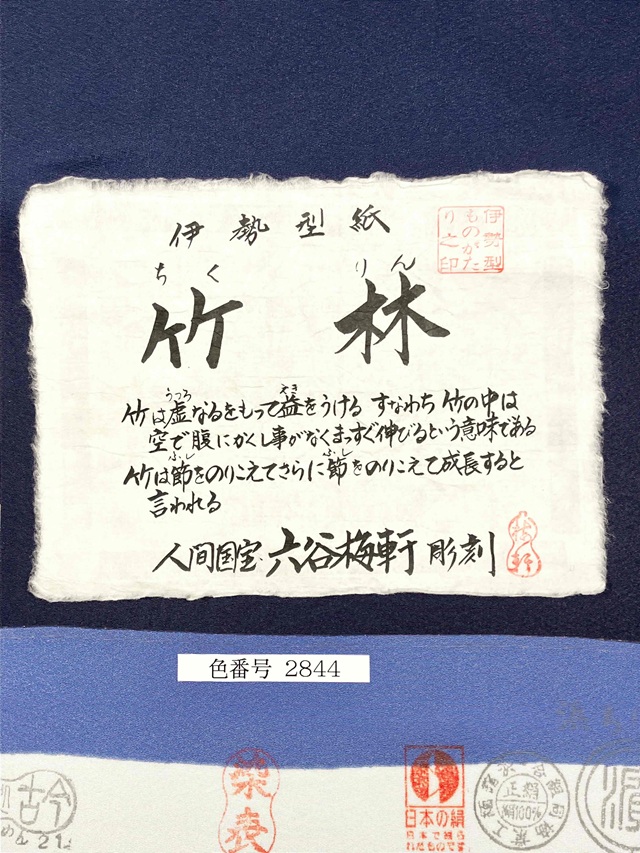 伊勢型紙
伊勢型
ものがた
り之印
ちく りん
竹林
竹は虚なるをもって益をうける すなわち 竹の中は
うつろ えき
空で腹にかくし事がなくまっすぐ伸びるという意味である
竹は節をのりこえてさらに節をのりこえて成長すると
ふし ふし
言われる
人間国宝 六谷梅軒 彫刻
梅軒
色番号 2844
染表
日本の絹
日本で織ら
れたものです。
正絹
絹100%
古今
めん 21